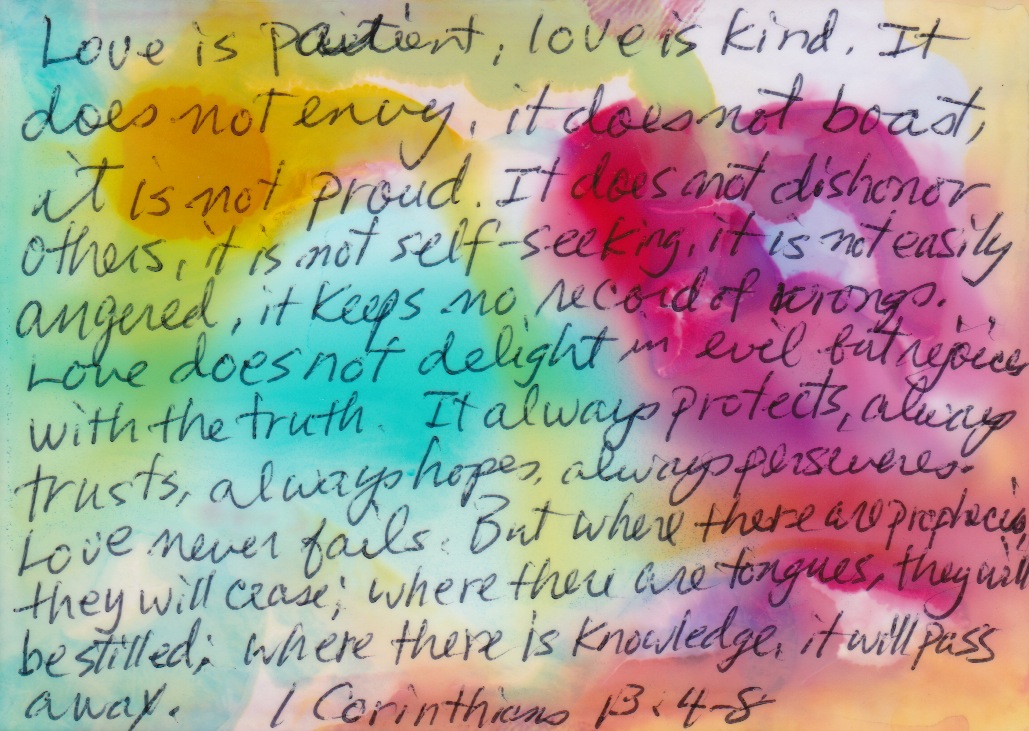 Love is patient, love is kind. It
does not envy, it does not boast,
it is not proud. It does not dishonor
others, it is not self-seeking, it is not easily
angered, it keeps no record of wrongs.
Love does not delight in evil but rejoices
with the truth. It always protects, always
trusts, always hopes, always perseveres.
Love never fails. But where there are prophecies,
they will cease; where there are tongues, they will
be stilled; where there is knowledge, it will pass
away. 1 Corinthians 13:4-8